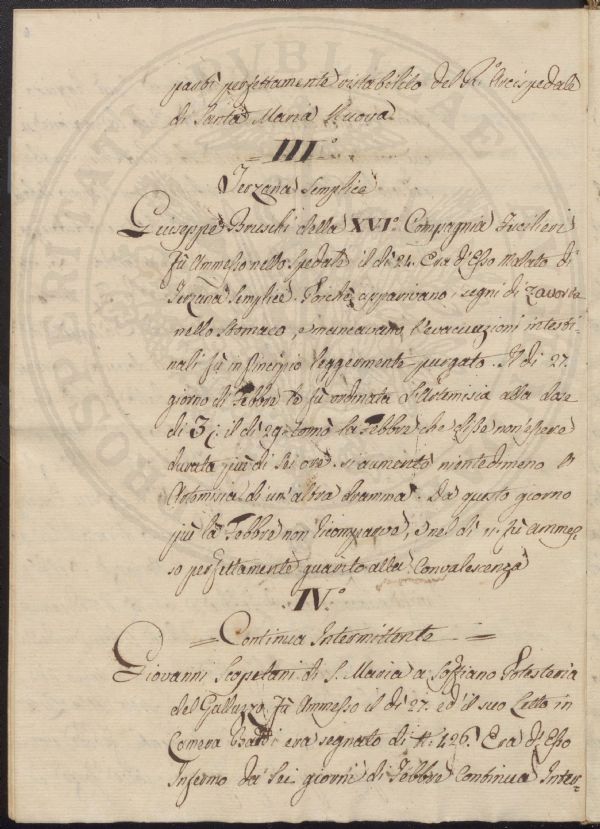 partì perfettamente ristabilito del R.° Arcispedale
di Santa Maria Nuova
= III.° =
Terzana Semplice
Giuseppe Bruschi della XVI.ª Compagnia Fucilieri
fù Ammesso nello Spedale il dì 24. Era d'Esso Malato di
Terzana Semplice. Perchè apparivano i segni di Zavorra
nello stomaco, e mancavano l'evacuazioni intesti-
nali fù in principio leggermente purgato. Il dì 27.
giorno di Febbre le fù ordinata l'Artemisia alla dose
di ʒj. il dì 29. tornò la Febbre che disse non essere
durata più di sei ore. si aumentò nientedimeno l'
Artemisia di un' altra dramma. Da questo giorno
più la Febbre non ricomparve, e nel dì fù ammes-
so perfettamente guarito alla Convalescenza
IV.°
= Continua Intermittente =
Giovanni Scopetani di S. Maria a Soffiano Potesteria
del Galluzzo, fù Ammesso il dì 27. ed il suo Letto in
Camera era segnato di N. 426. Era d'Esso
Infermo da sei giorni di Febbre Continua Inter=